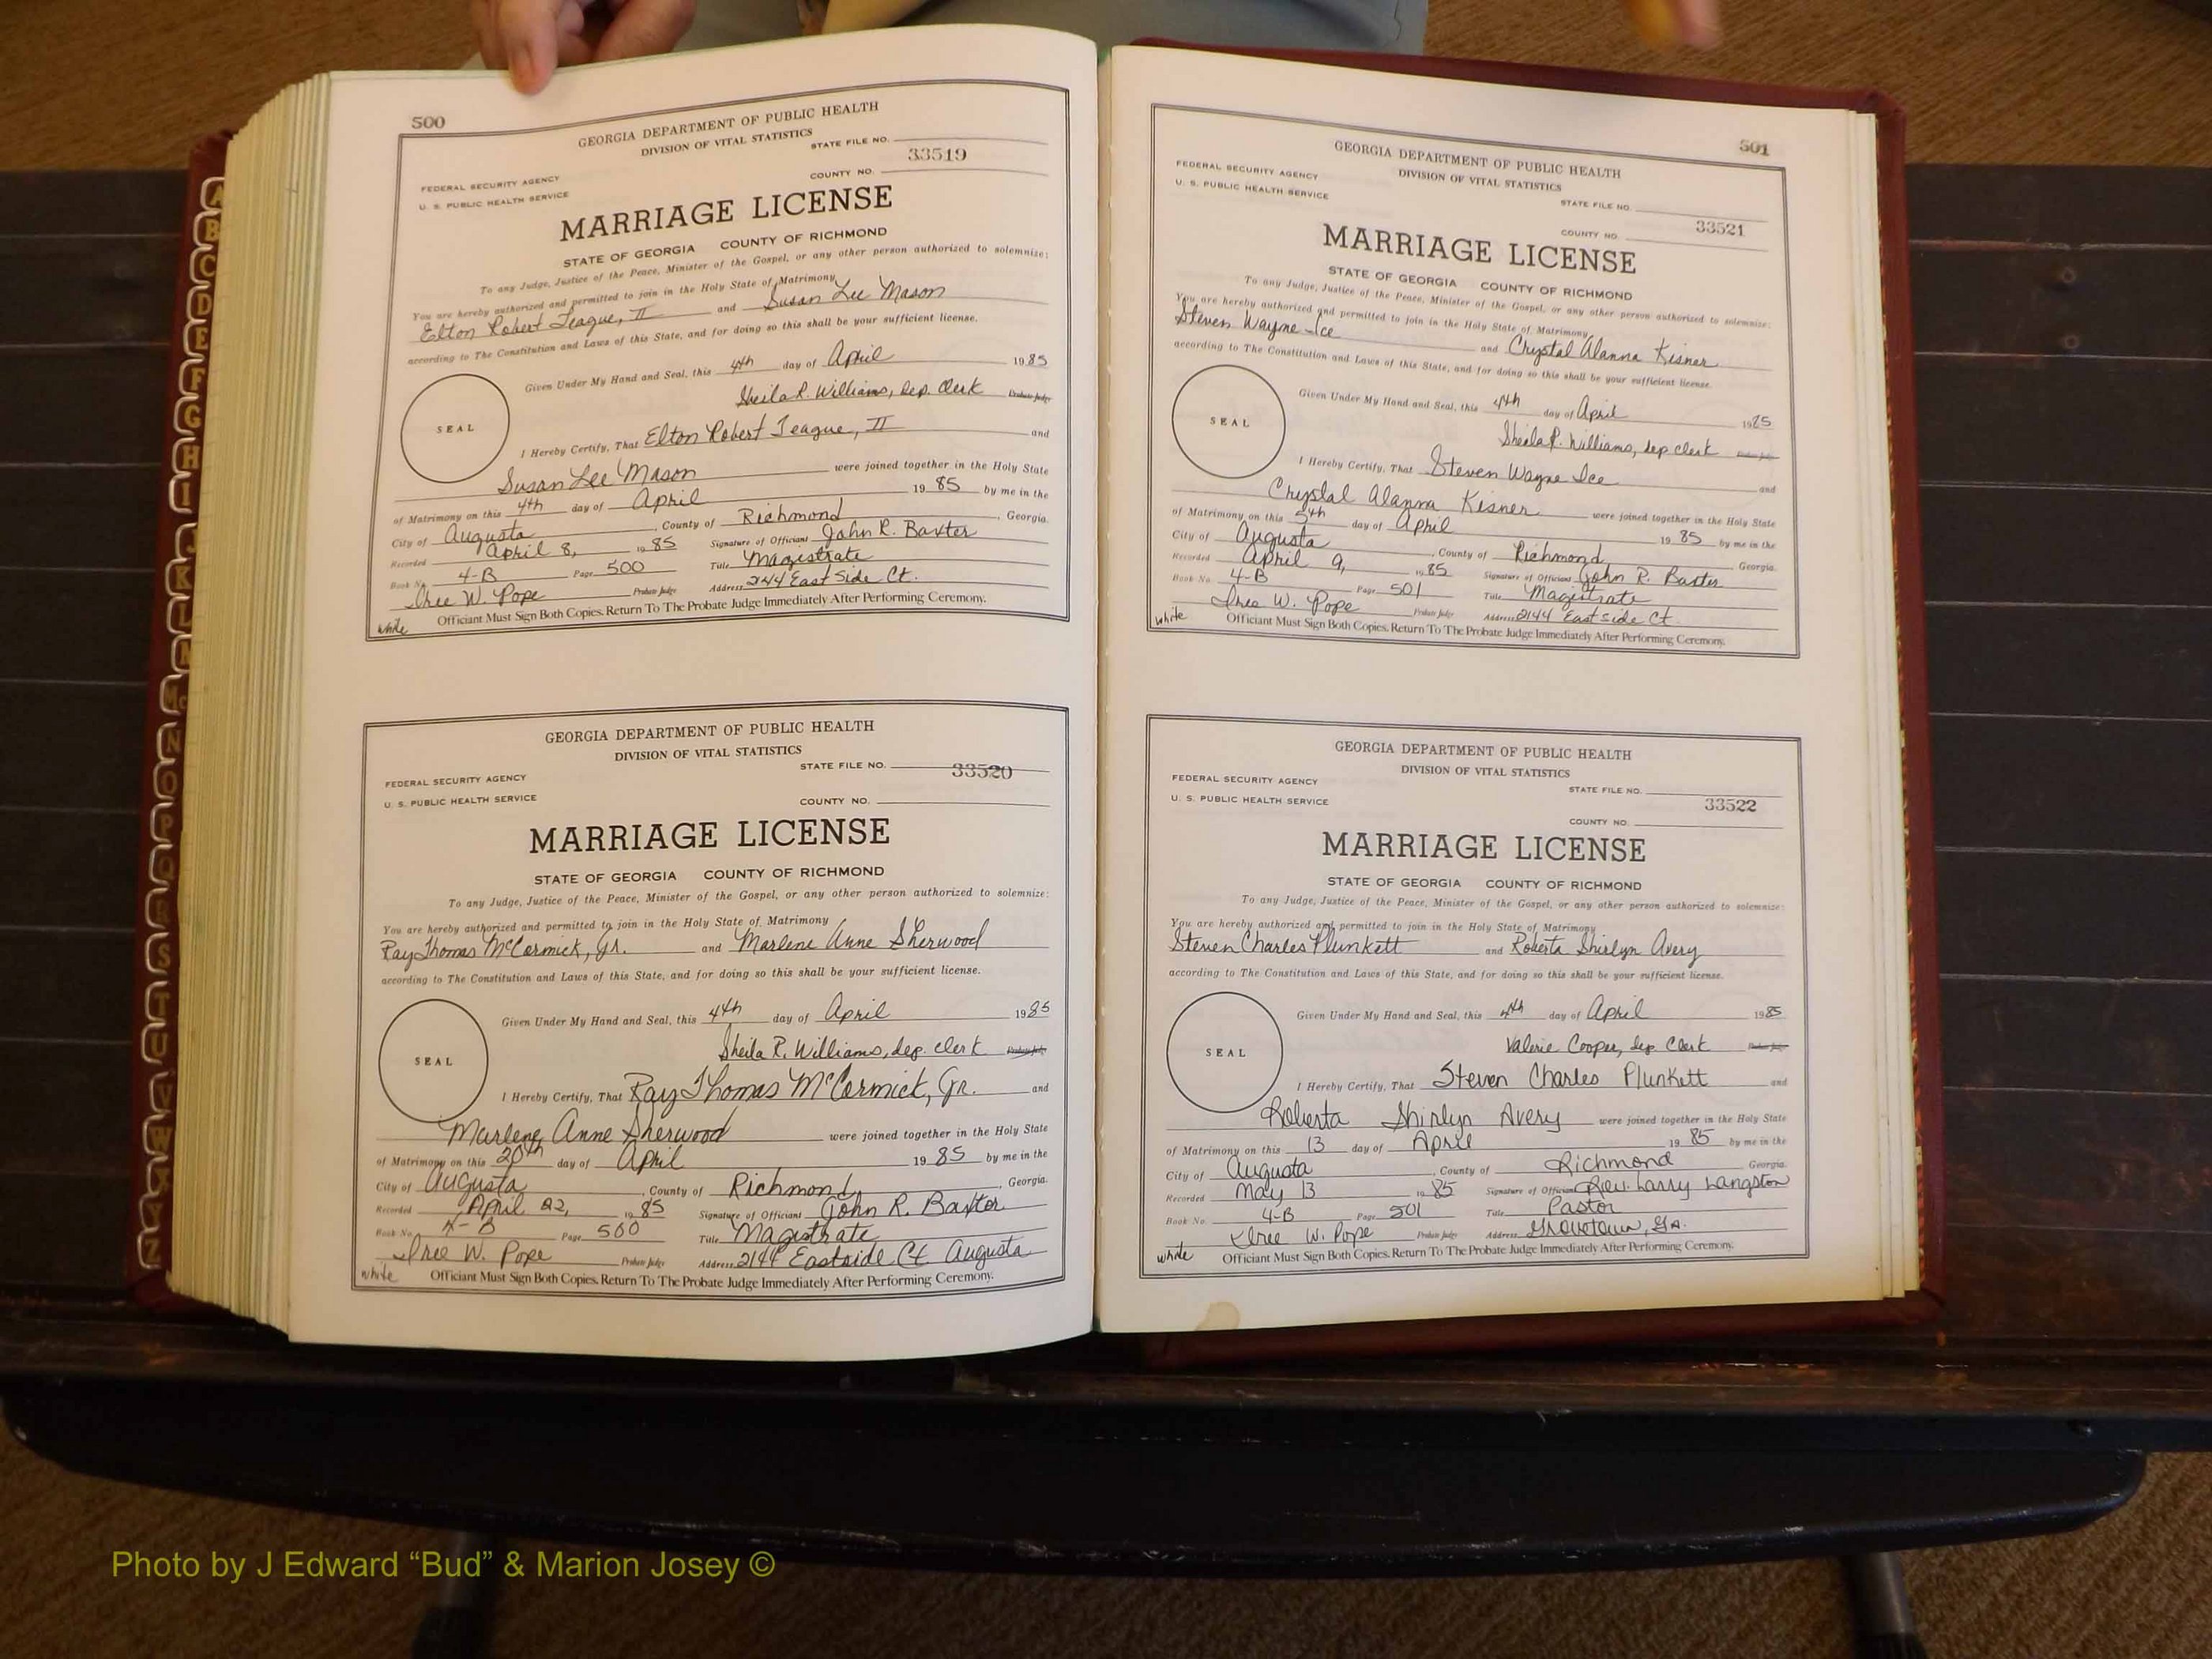 500
GEORGIA DEPARTMENT OF PUBLIC HEALTH
DIVISION OF VITAL STATISTICS
STATE FILE NO.
33519
FEDERAL SECURITY AGENCY
COUNTY NO.
U. S. PUBLIC HEALTH SERVICE
MARRIAGE LICENSE
STATE OF GEORGIA COUNTY OF RICHMOND
To any Judge, Justice of the Peace, Minister of the Gospel, or any other person authorized to solemnize:
You are hereby authorized and permitted to join in the Holy State of Matrimony
Elton Robert Teague, II and Susan Lee Mason
according to The Constitution and Laws of this State, and for doing so this shall be your sufficient license.
Given Under My Hand and Seal, this 4th day of April 1985
Sheila R. Williams, dep. clerk Probate Judge
SEAL
I Hereby Certify, That Elton Robert Teague, II and
Susan Lee Mason were joined together in the Holy State
of Matrimony on this 4th day of April 1985 by me in the
City of Augusta, County of Richmond, Georgia.
Recorded April 8, 1985 Signature of Officiant John R. Baxter
Book No. 4-B Page 500 Title Magistrate
Iree W. Pope Probate Judge Address 2144 East Side Ct.
white Officiant Must Sign Both Copies. Return To The Probate Judge Immediately After Performing Ceremony.
GEORGIA DEPARTMENT OF PUBLIC HEALTH
DIVISION OF VITAL STATISTICS
STATE FILE NO. 33520
FEDERAL SECURITY AGENCY
U. S. PUBLIC HEALTH SERVICE COUNTY NO.
MARRIAGE LICENSE
STATE OF GEORGIA COUNTY OF RICHMOND
To any Judge, Justice of the Peace, Minister of the Gospel, or any other person authorized to solemnize:
You are hereby authorized and permitted to join in the Holy State of Matrimony
Ray Thomas McCormick, Jr. and Marlene Anne Sherwood
according to The Constitution and Laws of this State, and for doing so this shall be your sufficient license.
Given Under My Hand and Seal, this 4th day of April 1985
Sheila R. Williams, dep. clerk Probate Judge
SEAL
I Hereby Certify, That Ray Thomas McCormick, Jr. and
Marlene Anne Sherwood were joined together in the Holy State
of Matrimony on this 20th day of April 1985 by me in the
City of Augusta, County of Richmond, Georgia.
Recorded April 22, 1985 Signature of Officiant John R. Baxter
Book No. 4-B Page 500 Title Magistrate
Iree W. Pope Probate Judge Address 2144 Eastside Ct Augusta
white Officiant Must Sign Both Copies. Return To The Probate Judge Immediately After Performing Ceremony.
501
GEORGIA DEPARTMENT OF PUBLIC HEALTH
DIVISION OF VITAL STATISTICS
FEDERAL SECURITY AGENCY
U. S. PUBLIC HEALTH SERVICE
STATE FILE NO.
33521
COUNTY NO.
MARRIAGE LICENSE
STATE OF GEORGIA COUNTY OF RICHMOND
To any Judge, Justice of the Peace, Minister of the Gospel, or any other person authorized to solemnize:
You are hereby authorized and permitted to join in the Holy State of Matrimony
Steven Wayne Ice and Crystal Alanna Kisner
according to The Constitution and Laws of this State, and for doing so this shall be your sufficient license.
Given Under My Hand and Seal, this 4th day of April 1985
Sheila R. Williams, dep clerk Probate Judge
SEAL
I Hereby Certify, That Steven Wayne Ice and
Crystal Alanna Kisner were joined together in the Holy State
of Matrimony on this 5th day of April 1985 by me in the
City of Augusta, County of Richmond, Georgia.
Recorded April 9, 1985 Signature of Officiant John R. Baxter
Book No. 4-B Page 501 Title Magistrate
Iree W. Pope Probate Judge Address 2144 East side Ct.
white Officiant Must Sign Both Copies. Return To The Probate Judge Immediately After Performing Ceremony.
GEORGIA DEPARTMENT OF PUBLIC HEALTH
DIVISION OF VITAL STATISTICS
FEDERAL SECURITY AGENCY
STATE FILE NO.
U. S. PUBLIC HEALTH SERVICE 33522
COUNTY NO.
MARRIAGE LICENSE
STATE OF GEORGIA COUNTY OF RICHMOND
To any Judge, Justice of the Peace, Minister of the Gospel, or any other person authorized to solemnize:
You are hereby authorized and permitted to join in the Holy State of Matrimony
Steven Charles Plunkett and Roberta Shirlyn Avery
according to The Constitution and Laws of this State, and for doing so this shall be your sufficient license.
Given Under My Hand and Seal, this 4th day of April 1985
Valerie Cooper, dep. Clerk Probate Judge
SEAL
I Hereby Certify, That Steven Charles Plunkett and
Roberta Shirlyn Avery were joined together in the Holy State
of Matrimony on this 13 day of April 1985 by me in the
City of Augusta, County of Richmond Georgia.
Recorded May 13 1985 Signature of Officiant Rev. Larry Langston
Book No. 4-B Page 501 Title Pastor
Iree W. Pope Probate Judge Address Grovetown, Ga.
white Officiant Must Sign Both Copies. Return To The Probate Judge Immediately After Performing Ceremony.
A
B
C
D
E
F
G
H
I
J
K
L
M
Mc
N
O
P
Q
R
S
T
U
V
W
Y
Z
Photo by J Edward “Bud” & Marion Josey ©